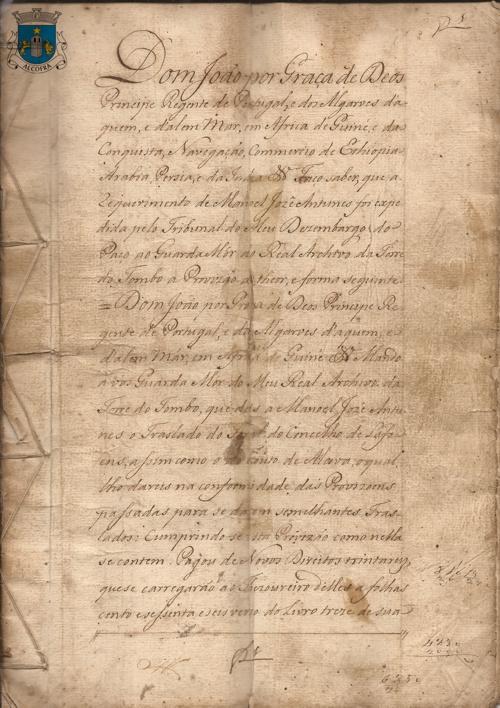 ALCOFRA
Dom João por Graça de Deos
Principe Regente de Portugal, e dos Algarves d'a
quem, e d'alem Mar, em Africa de Guiné, e da
Conquista, Navegação, Commercio de Ethiopia
Arabia Persia, e da India &ª Faço saber, que a
Requerimento de Manoel Jozé Antunes foi expe
dida pelo Tribunal do Meu Dezembargo do
Paço ao Guarda Mór do Real Archivo da Torre
do Tombo a Provizão do theor, e forma seguinte
= Dom João por Graça de Deos Principe Re
gente de Portugal, e dos Algarves d'aquem, e
d'alem Mar, em Africa de Guiné &ª Mando
a vós Guarda Mór do Meu Real Archivo da
Torre do Tombo, que deis a Manoel Jozé Antu
nes o Traslado do do Concelho de Lafo
ens, assim como o do Couto de Alcova, o qual
lho dareis na conformidade das Provizoens
passadas para se darem semelhantes Tras
lados: Cumprindo se esta Provizão como nella
se contem. Pagou de Novos Direitos trinta reis,
que se carregarão ao Thezoureiro delles a folhas
cento e sessenta e seis verso do Livro treze de sua